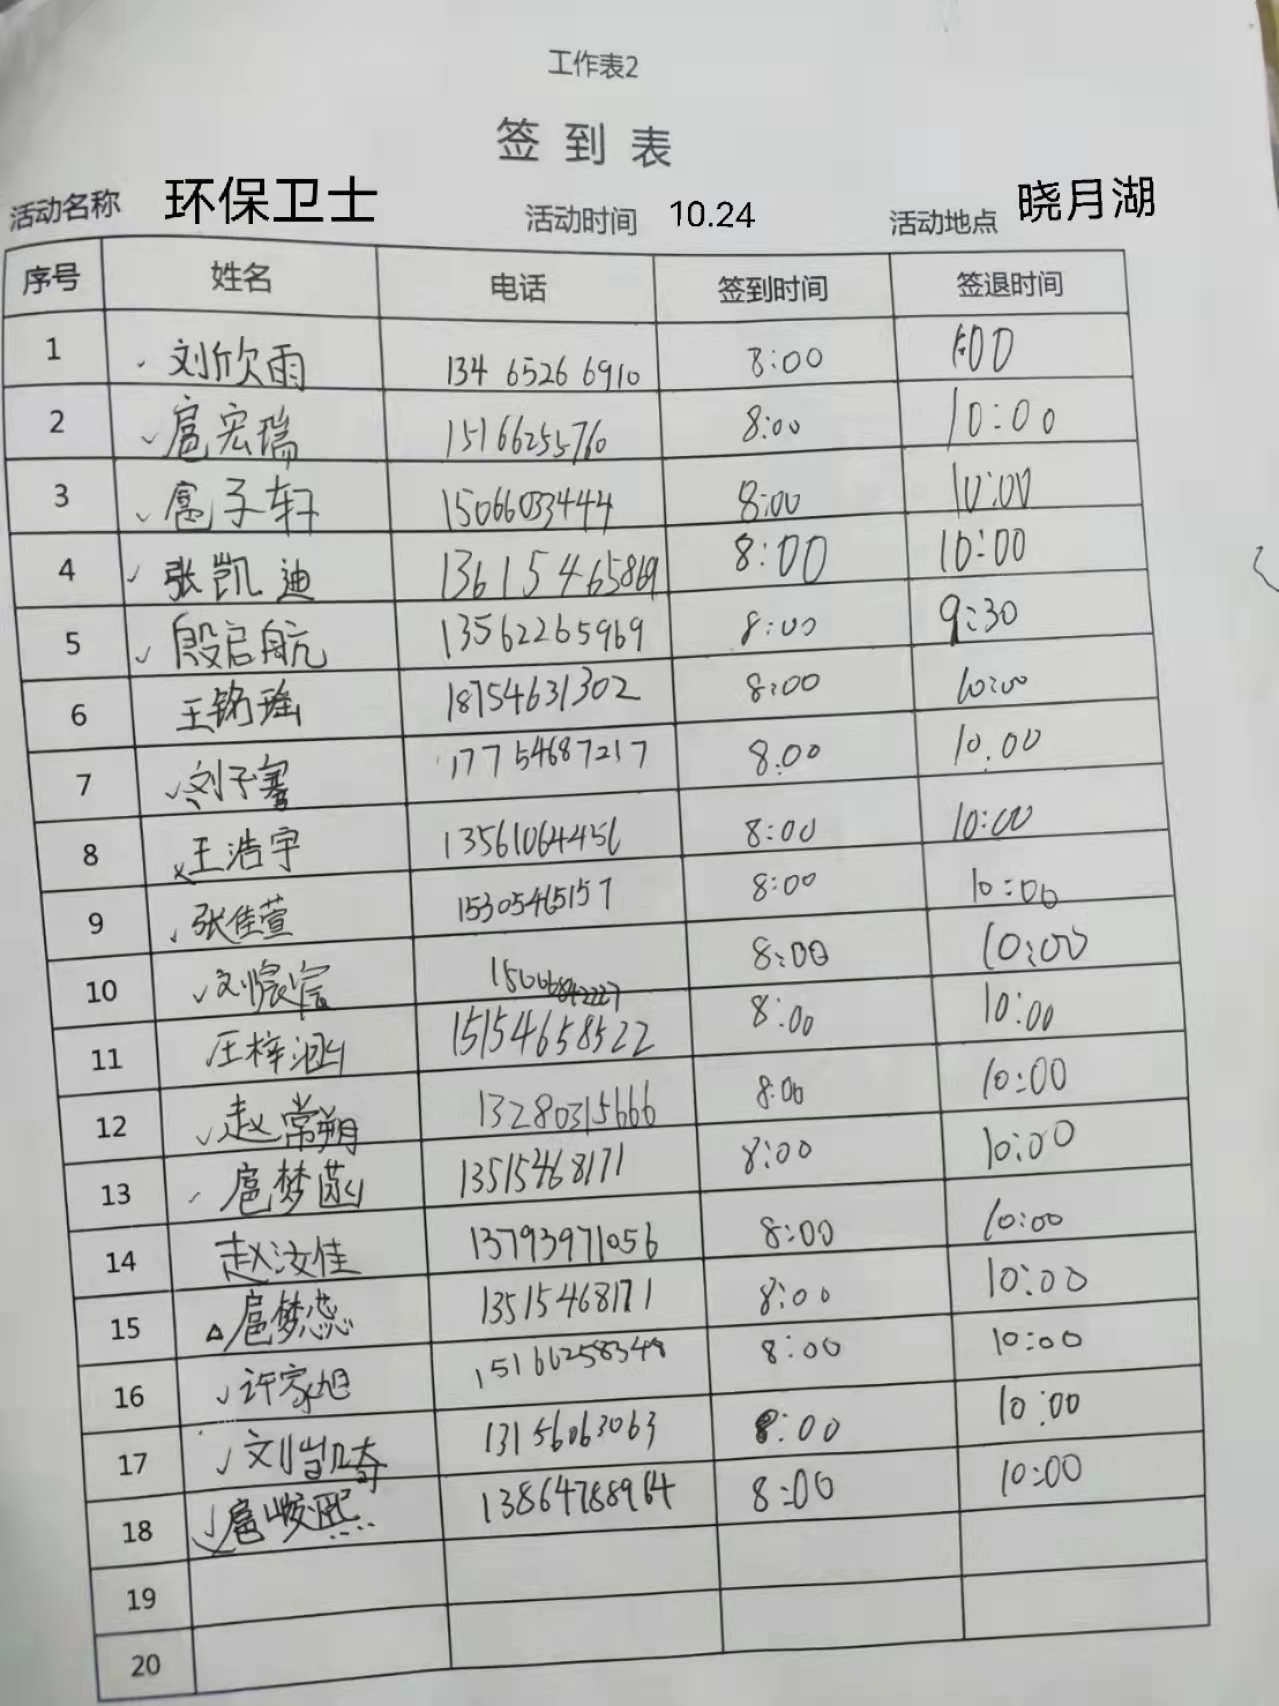 工作表2
签到表
活动名称 环保卫士 活动时间 10.24 活动地点 晓月湖
序号 姓名 电话 签到时间 签退时间
1 刘欣雨 134 6526 6910 8:00
2 扈宏瑞 15166255760 8:00 10:00
3 扈子轩 15066033444 8:00 10:00
4 张凯迪 136154 65869 8:00 10:00
5 殷启航 13562265969 8:00 9:30
6 王铭瑶 18754631302 8:00 10:00
7 刘子骞 17754687217 8.00 10.00
8 王浩宇 13561064456 8:00 10:00
9 张佳萱 15305465157 8:00 10:00
10 8:00 10:00
11 王梓涵 15154658522 8:00 10:00
12 赵常朔 13280315666 8:00 10:00
13 扈梦菡 13515468171 8:00 10:00
14 赵汝佳 13793971056 8:00 10:00
15 扈梦蕊 13515468171 8:00 10:00
16 许家旭 15166258348 8:00 10:00
17 刘凯琦 13156063063 8:00 10:00
18 扈峻熙 13864788964 8:00 10:00
19
20